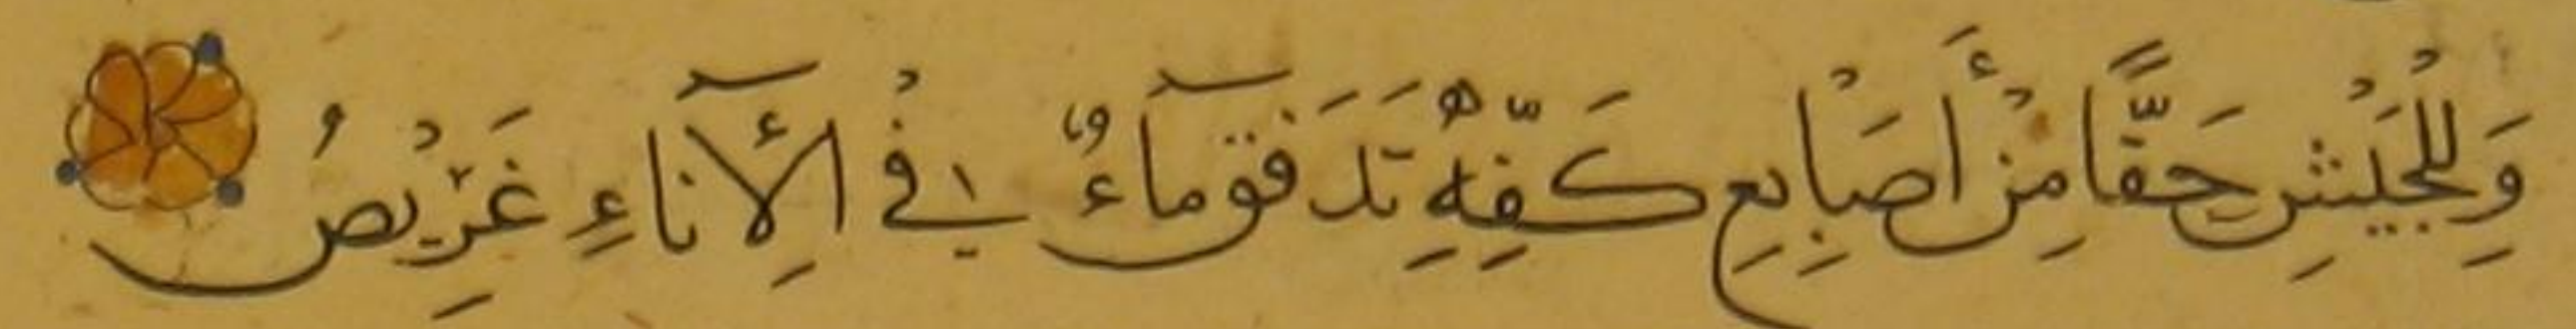 وَلِلْجَيْشِ حَقًّا مِنْ أَصَابِعِ كَفِّهِ تَدَفَّقَ مَآءٌ فِي الْإِنَآءِ غَرِيْصُ